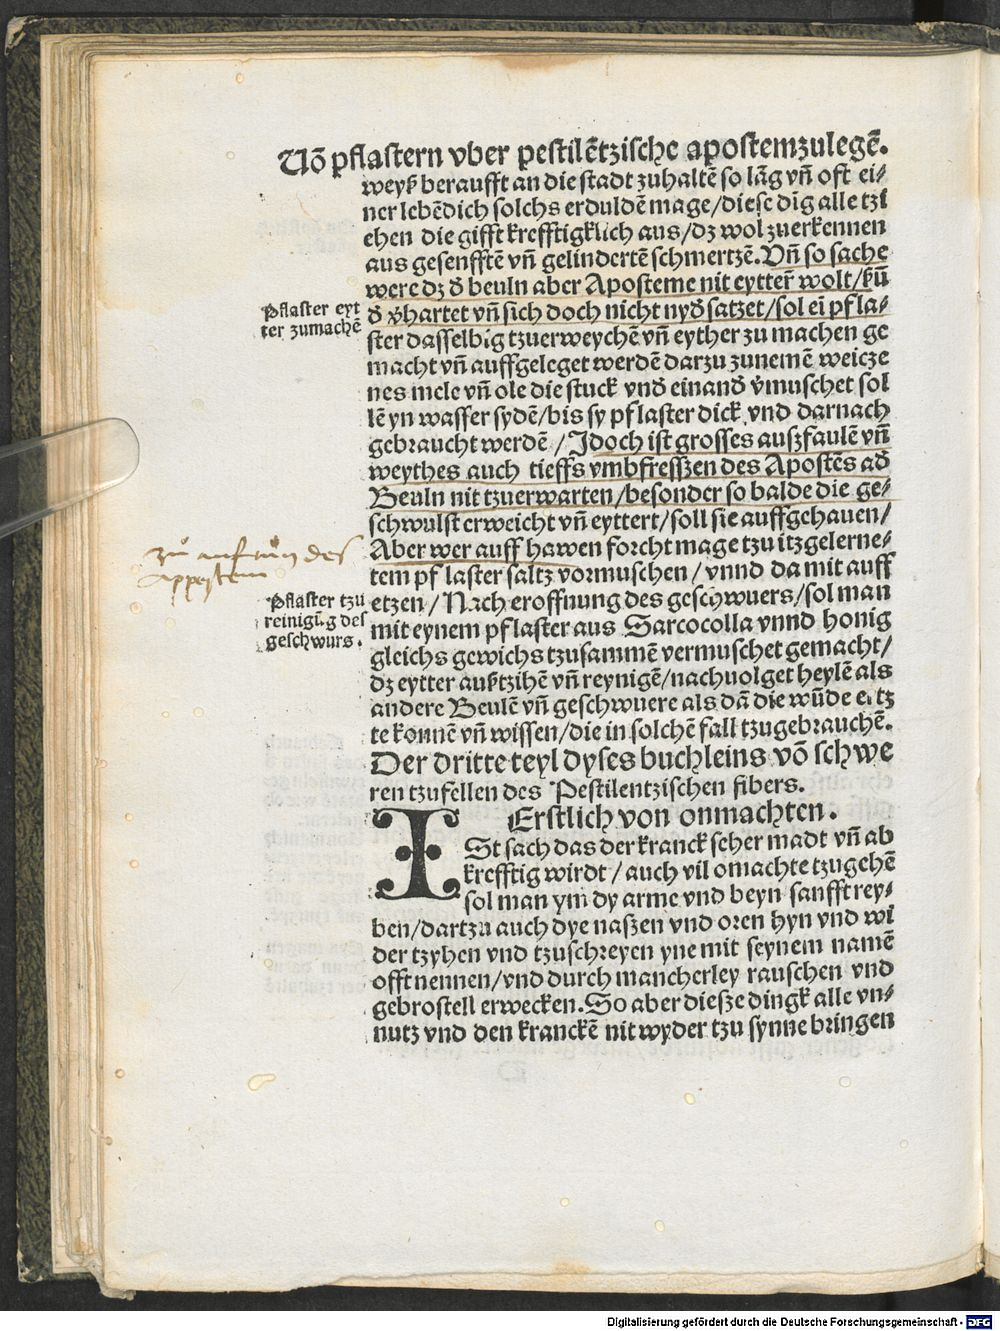 Uō pflastern vber pestilētzische apostemzulegē.
weyß beraufft an die stadt zuhaltē so lāg vn̄ oft ei⸗
ner lebēdich solchs erduldē mage/diese dīg alle tzi
ehen die gifft krefftigklich aus/dz wol zuerkennen
aus gesenfftē vn̄ gelindertē schmertzē. Vn̄ so sache
were dz d̄ beuln aber Aposteme nit eytter̄ wolt/
d̄ v̄hartet vn̄ sich doch nicht nyd̄ satzet/sol eī pfla⸗
ster dasselbig tzuerweychē vn̄ eyther zu machen ge
macht vn̄ auffgeleget werdē darzu zunemē weicze
nes mele vn̄ ole die stuck vnd̄ einand̄ v̄muschet sol
lē yn wasser sydē/bis sy pflaster dick vnd darnach
gebraucht werdē/Jdoch ist grosses auszfaulē vn̄
weythes auch tieffs vmbfresszen des Apostēs ad̄
Beuln nit tzuerwarten/besonder so balde die ge⸗
schwulst erweicht vn̄ eyttert/soll sie auffgehauen/
Aber wer auff hawen forcht mage tzu itzgelerne⸗
tem pflaster saltz vormuschen/vnnd da mit auff
etzen/Nach eroffnung des geschwuers/sol man
mit eynem pflaster aus Sarcocolla vnnd honig
gleichs gewichs tzusammē vermuschet gemacht/
dz eytter außtzihē vn̄ reynigē/nachuolget heylē als
andere Beulē vn̄ geschwuere als dā die wūde ertz
te konnē vn̄ wissen/die in solchē fall tzugebrauchē.
Pflaster eyt
ter zumachē
zu aufthun des
appostem
Pflaster tzu
reinigūg des
geschwurs.
Der dritte teyl dyses buchleins vō schwe
ren tzufellen des Pestilentzischen fibers.
Erstlich von onmachten.
ISt sach das der kranck seher madt vn̄ ab
krefftig wirdt/auch vil omachte tzugehē
sol man ym dy arme vnd beyn sanfft rey⸗
ben/dartzu auch dye naszen vnd oren hyn vnd wi
der tzyhen vnd tzuschreyen yne mit seynem namē
offt nennen/vnd durch mancherley rauschen vnd
gebrostell erwecken. So aber diesze dingk alle vn⸗
nutz vnd den kranckē nit wyder tzu synne bringen
Digitalisierung gefördert durch die Deutsche Forschungsgemeinschaft - DFG